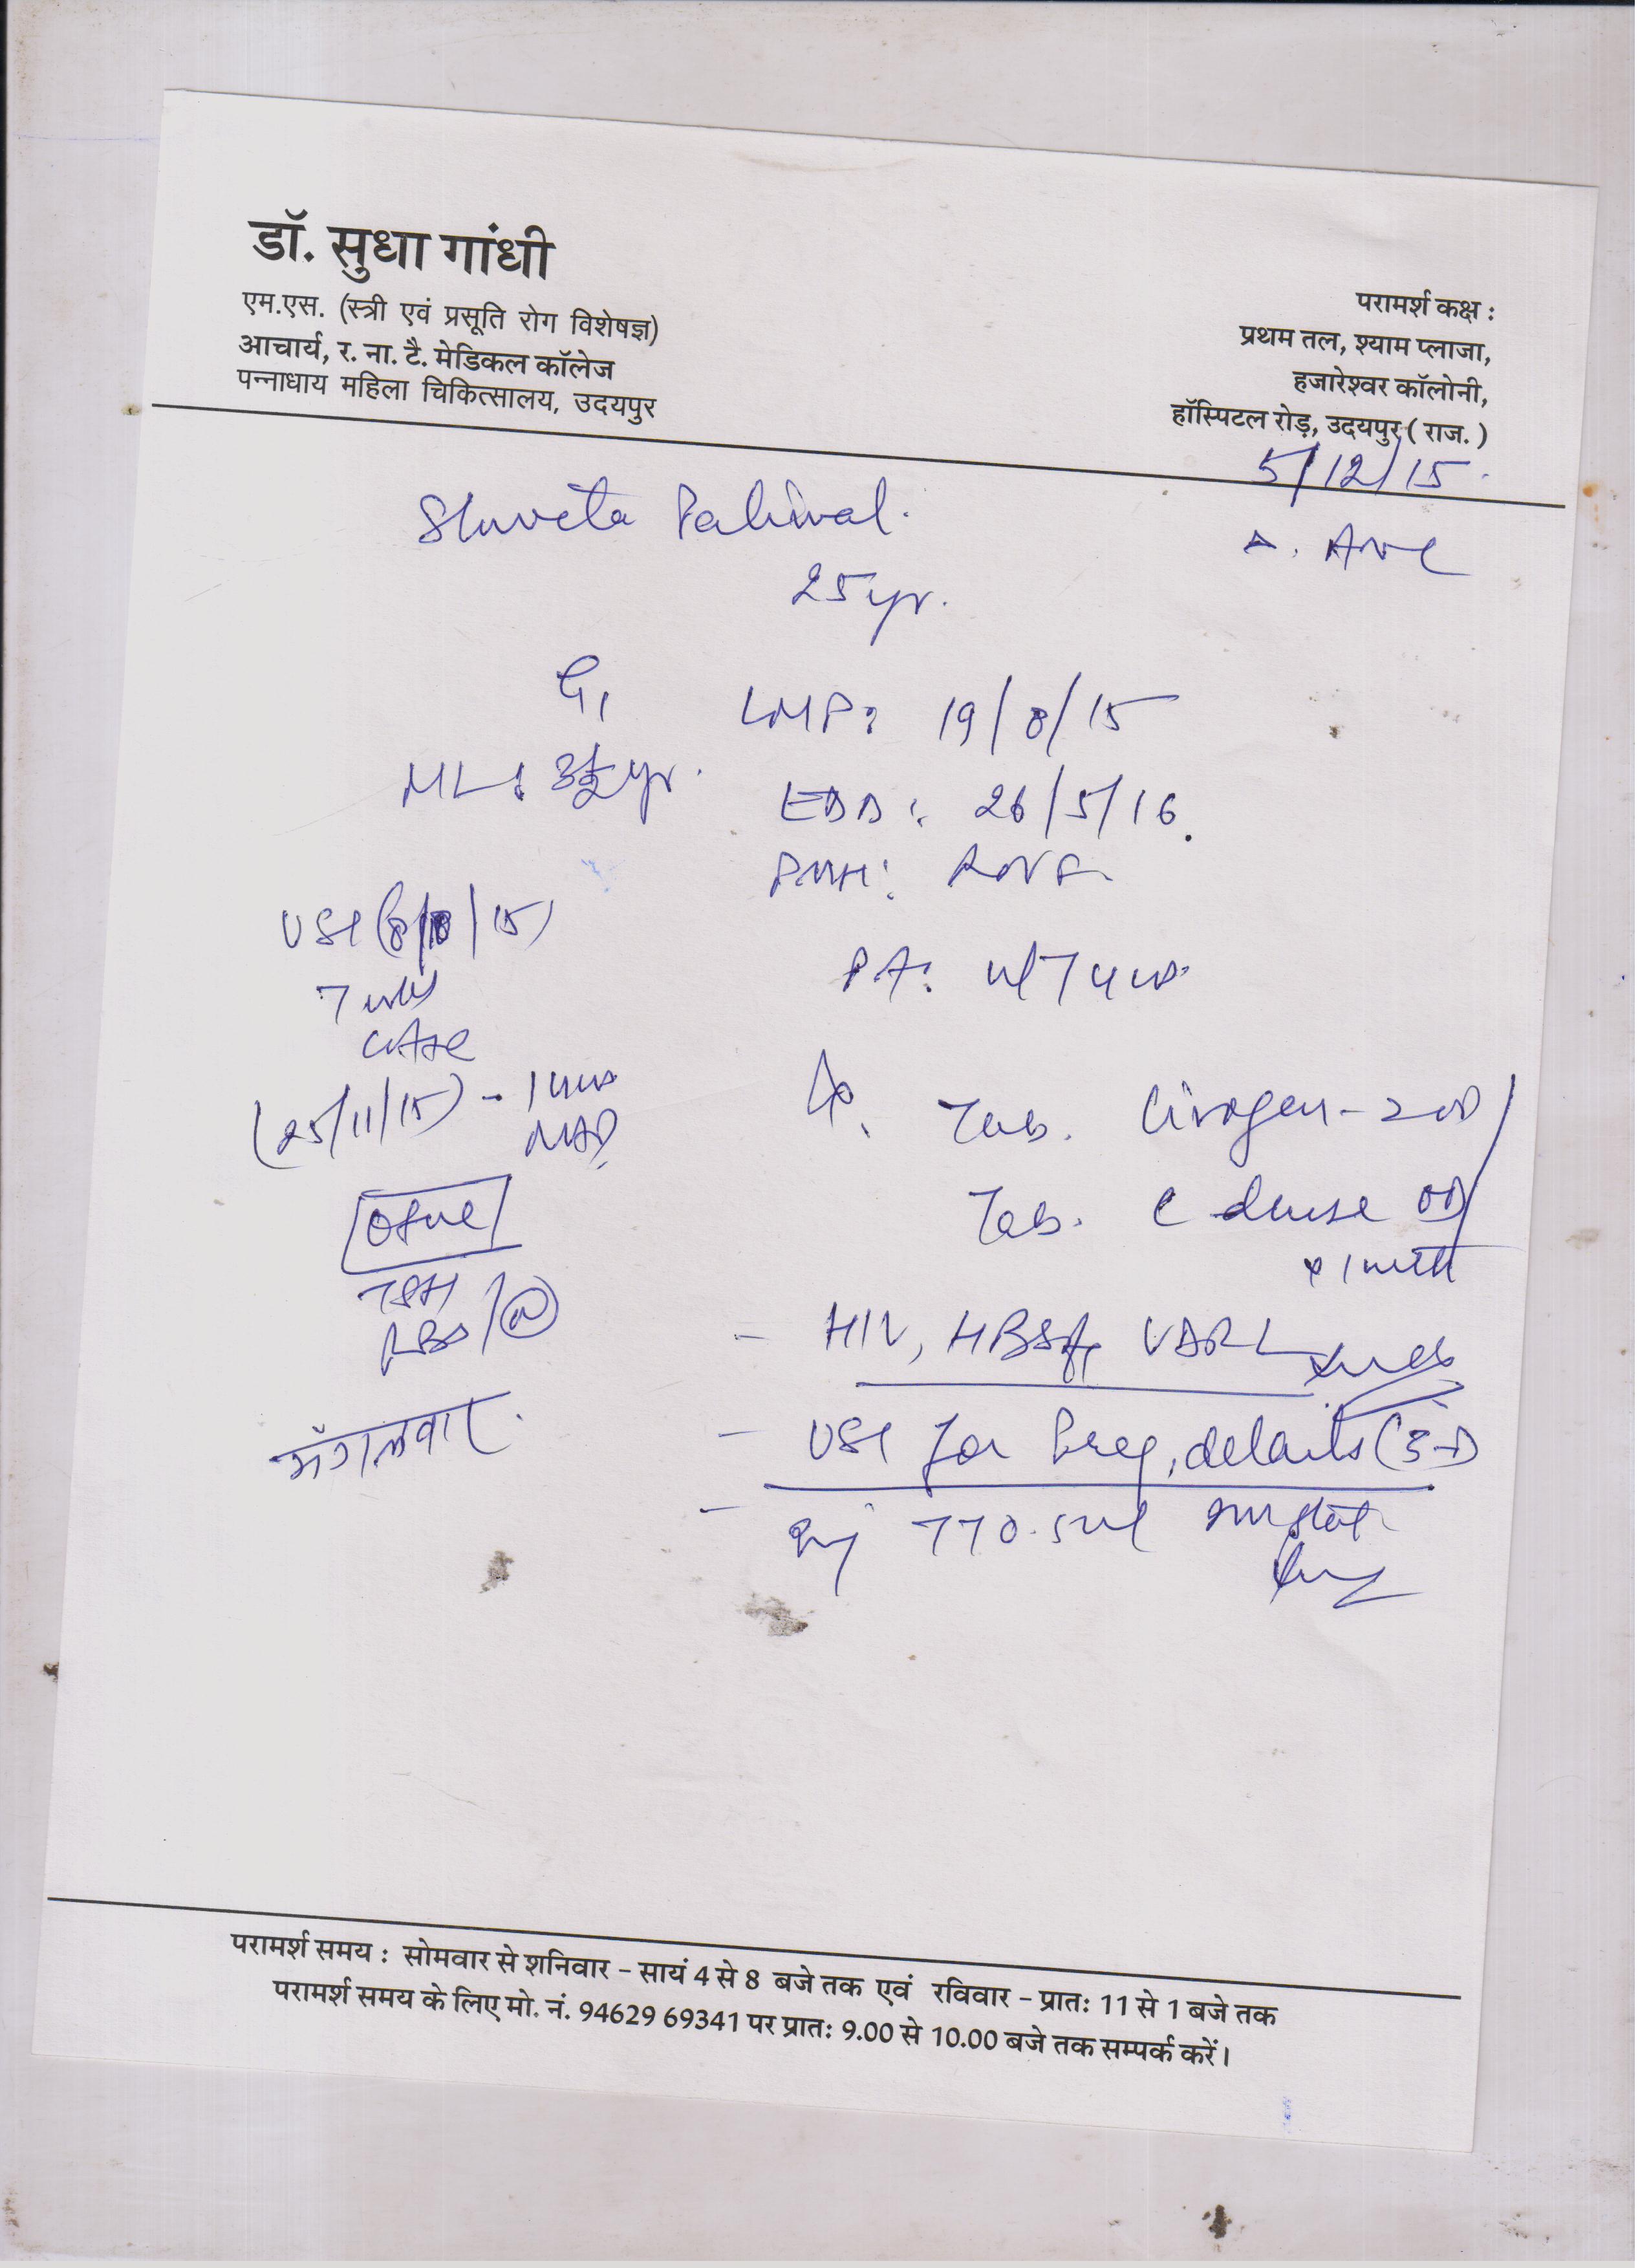 डॉ. सुधा गांधी
एम.एस. (स्त्री एवं प्रसूति रोग विशेषज्ञ)
आचार्य, र. ना. टै. मेडिकल कॉलेज
पन्नाधाय महिला चिकित्सालय, उदयपुर
परामर्श कक्ष :
प्रथम तल, श्याम प्लाजा,
हजारेश्वर कॉलोनी,
हॉस्पिटल रोड़, उदयपुर ( राज. )
5/12/15
Shweta Paliwal.
25 yr.
G1
LMP: 19/8/15
ML: 3½ yr.
EDD: 26/5/16.
PMH:
USG (8/10/15)
7 wks
PA:
(25/11/15) -
Tab. Livogen - 2 OD
Tab. C dense OD
x 1 mth
TSH
RBS
- HIV, HBsAg, VDRL
मंगलवार.
- USG for Preg, details (3-D)
- Inj TT 0.5 ml
परामर्श समय : सोमवार से शनिवार - सायं 4 से 8 बजे तक एवं रविवार - प्रातः 11 से 1 बजे तक
परामर्श समय के लिए मो. नं. 94629 69341 पर प्रातः 9.00 से 10.00 बजे तक सम्पर्क करें।